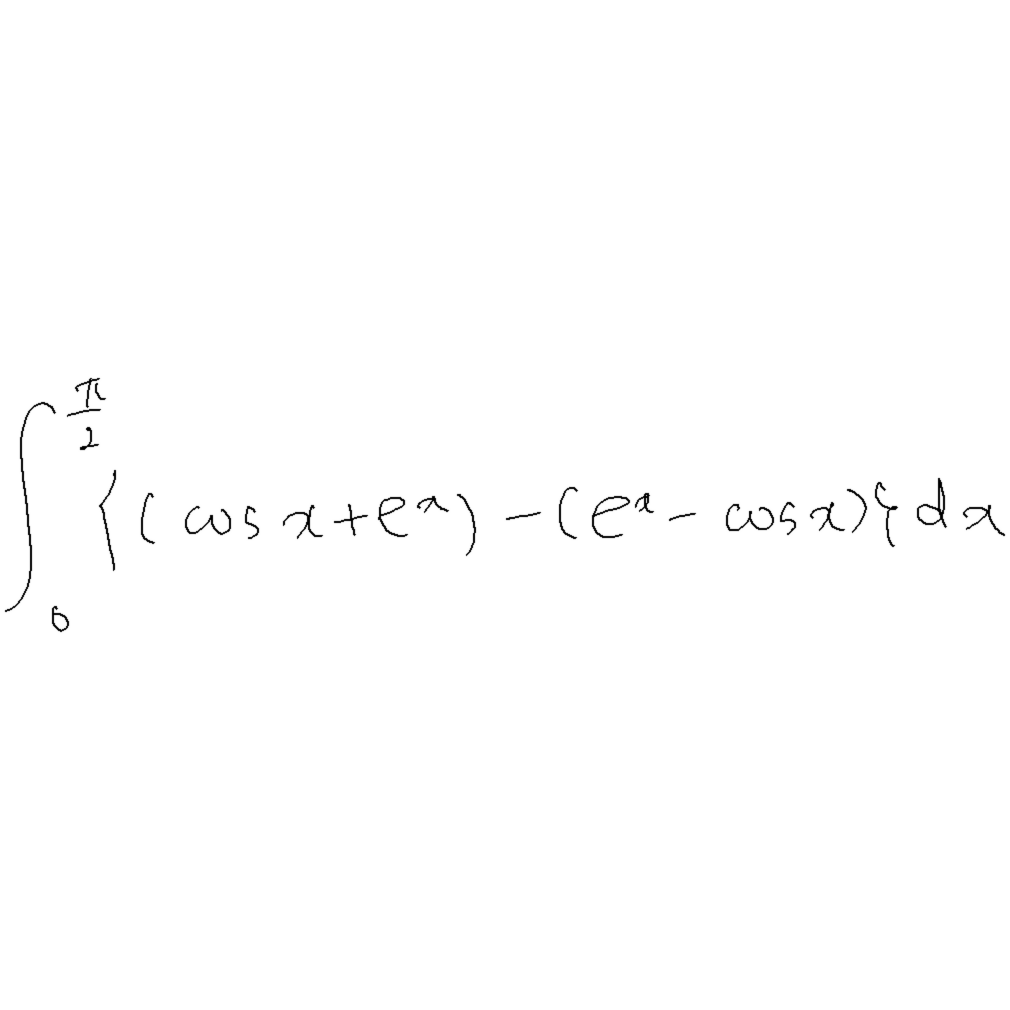 ∫_0^{\frac{π}{2}} {(cos x+e^x) -(e^x - cos x)} dx